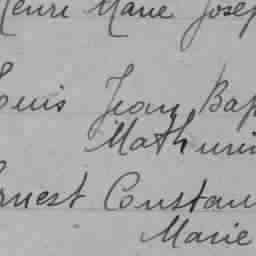 Henri Marie Josep
Louis Jean Bap
Mathurin
Ernest Constan
Marie